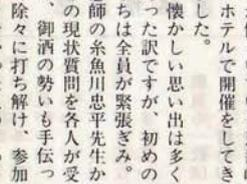 ホテルで開催をしてき
した。
懐かしい思い出は多く
った訳ですが、初めの
ちは全員が緊張ぎみ。
師の糸魚川忠平先生か
の現状質問を各人が受
、御酒の勢いも手伝っ
除々に打ち解け、参加